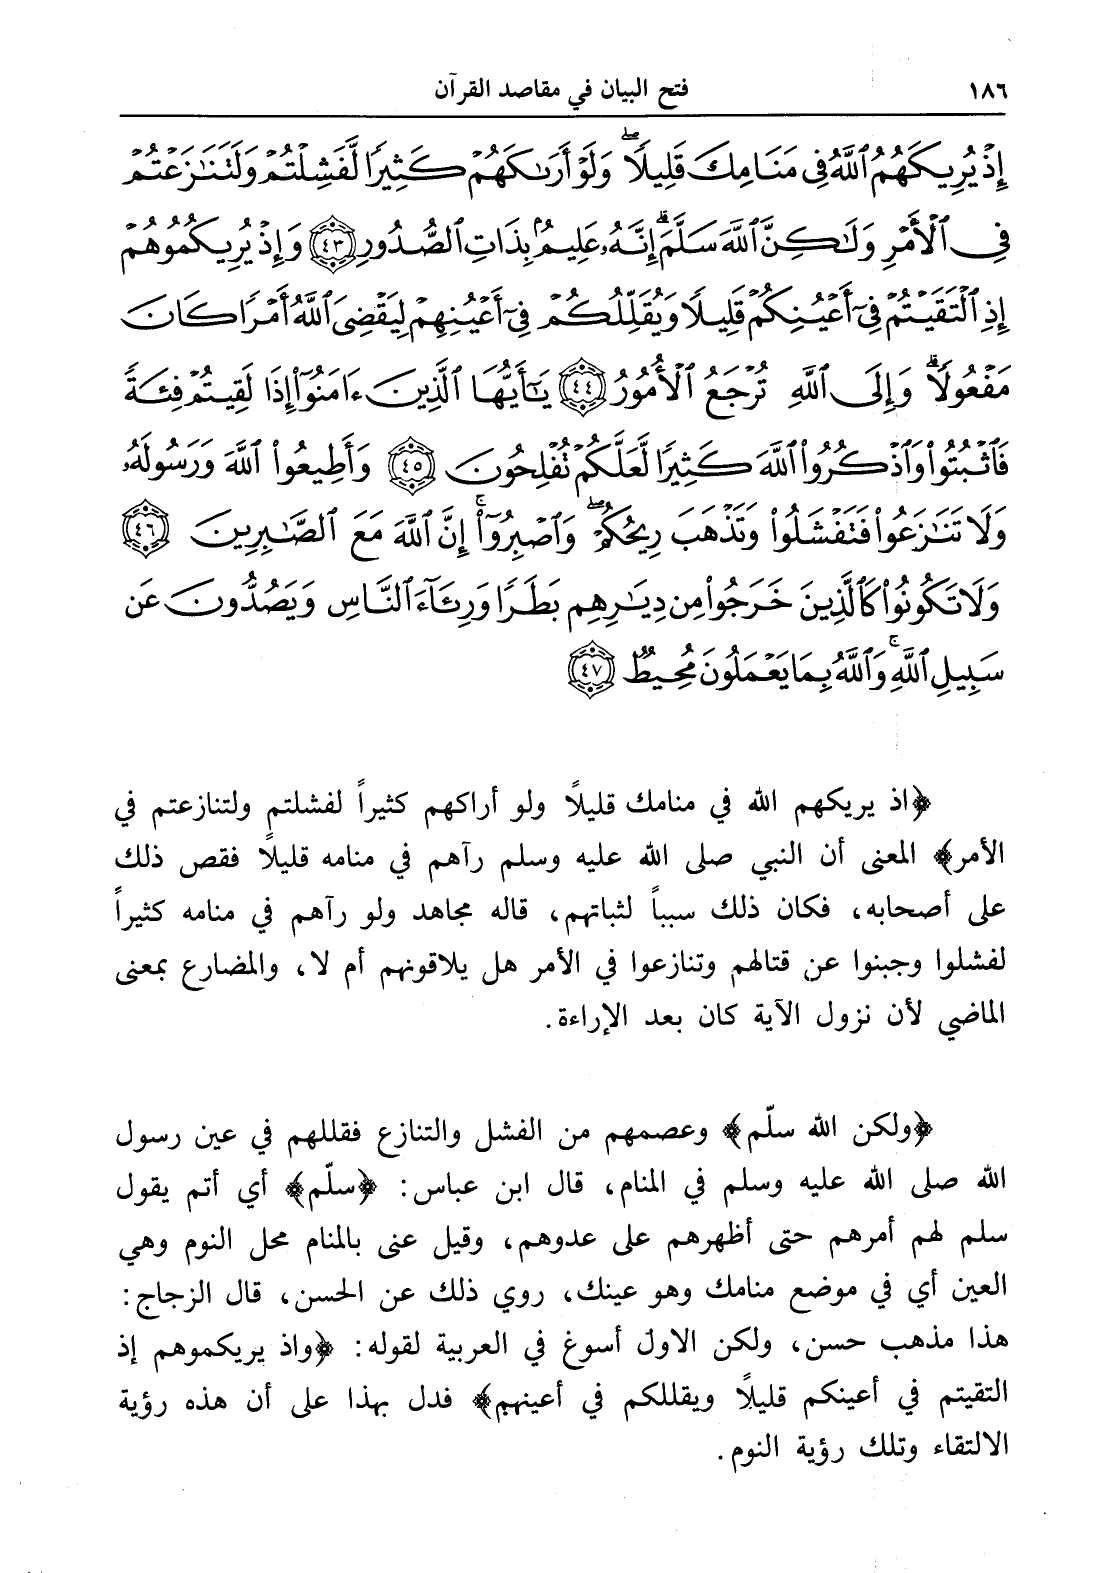 ١٨٦
فتح البيان في مقاصد القرآن
إِذْ يُرِيكَهُمُ ٱللَّهُ فِى مَنَامِكَ قَلِيلًا ۖ وَلَوْ أَرَىٰكَهُمْ كَثِيرًا لَّفَشِلْتُمْ وَلَتَنَٰزَعْتُمْ
فِى ٱلْأَمْرِ وَلَٰكِنَّ ٱللَّهَ سَلَّمَ ۗ إِنَّهُۥ عَلِيمٌۢ بِذَاتِ ٱلصُّدُورِ ﴿٤٣﴾ وَإِذْ يُرِيكُمُوهُمْ
إِذِ ٱلْتَقَيْتُمْ فِىٓ أَعْيُنِكُمْ قَلِيلًا وَيُقَلِّلُكُمْ فِىٓ أَعْيُنِهِمْ لِيَقْضِىَ ٱللَّهُ أَمْرًا كَانَ
مَفْعُولًا ۗ وَإِلَى ٱللَّهِ تُرْجَعُ ٱلْأُمُورُ ﴿٤٤﴾ يَٰٓأَيُّهَا ٱلَّذِينَ ءَامَنُوٓا۟ إِذَا لَقِيتُمْ فِئَةً
فَٱثْبُتُوا۟ وَٱذْكُرُوا۟ ٱللَّهَ كَثِيرًا لَّعَلَّكُمْ تُفْلِحُونَ ﴿٤٥﴾ وَأَطِيعُوا۟ ٱللَّهَ وَرَسُولَهُۥ
وَلَا تَنَٰزَعُوا۟ فَتَفْشَلُوا۟ وَتَذْهَبَ رِيحُكُمْ ۖ وَٱصْبِرُوٓا۟ ۚ إِنَّ ٱللَّهَ مَعَ ٱلصَّٰبِرِينَ ﴿٤٦﴾
وَلَا تَكُونُوا۟ كَٱلَّذِينَ خَرَجُوا۟ مِن دِيَٰرِهِم بَطَرًا وَرِئَآءَ ٱلنَّاسِ وَيَصُدُّونَ عَن
سَبِيلِ ٱللَّهِ ۚ وَٱللَّهُ بِمَا يَعْمَلُونَ مُحِيطٌ ﴿٤٧﴾
﴿اذ يريكهم الله في منامك قليلًا ولو أراكهم كثيراً لفشلتم ولتنازعتم في
الأمر﴾ المعنى أن النبي صلى الله عليه وسلم رآهم في منامه قليلًا فقص ذلك
على أصحابه، فكان ذلك سبباً لثباتهم، قاله مجاهد ولو رآهم في منامه كثيراً
لفشلوا وجبنوا عن قتالهم وتنازعوا في الأمر هل يلاقونهم أم لا، والمضارع بمعنى
الماضي لأن نزول الآية كان بعد الإراءة.
﴿ولكن الله سلّم﴾ وعصمهم من الفشل والتنازع فقللهم في عين رسول
الله صلى الله عليه وسلم في المنام، قال ابن عباس: ﴿سلّم﴾ أي أتم يقول
سلم لهم أمرهم حتى أظهرهم على عدوهم، وقيل عنى بالمنام محل النوم وهي
العين أي في موضع منامك وهو عينك، روي ذلك عن الحسن، قال الزجاج:
هذا مذهب حسن، ولكن الاول أسوغ في العربية لقوله: ﴿واذ يريكموهم إذ
التقيتم في أعينكم قليلًا ويقللكم في أعينهم﴾ فدل بهذا على أن هذه رؤية
الالتقاء وتلك رؤية النوم.